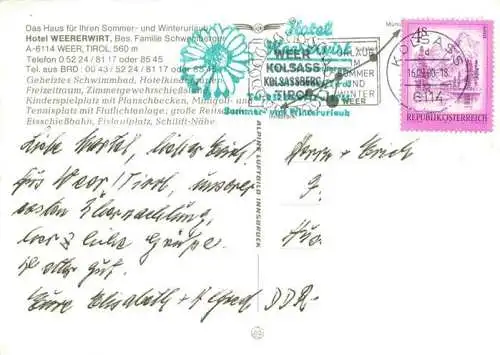 Das Haus für Ihren Sommer- und Winterurlaub
Hotel WEERERWIRT, Bes. Familie Schwemberger
A-6114 WEER, TIROL, 560 m
Telefon 0 52 24 / 81 17 oder 85 45
Tel. aus BRD: 00 43 / 52 24 / 81 17 oder 85 45
Geheiztes Schwimmbad, Hotelkindergarten,
Freizeitraum, Zimmergewehr
Kinderspielplatz mit Planschbecken, Minigolf- und
Tennisplatz mit Flutlichtanlage, große
Eisschießbahn, Eislaufplatz, Schilift-Nähe
Hotel
Weererwirt
Sommer- und Winterurlaub
WEER
KOLSASS
KOLSASSBERG
TIROL
URLAUB
IM
SOMMER
UND
WINTER
WEER
KOLSASS
6114
4S
REPUBLIK ÖSTERREICH
ALPINE LUFTBILD INNSBRUCK
Liebe Martel, lieber Erich!
Aus Weer/Tirol, unserer
ersten Übernachtung,
herzliche Grüße.
Ist alles gut.
Eure Elisabeth +
Herrn + Erich
DDR-